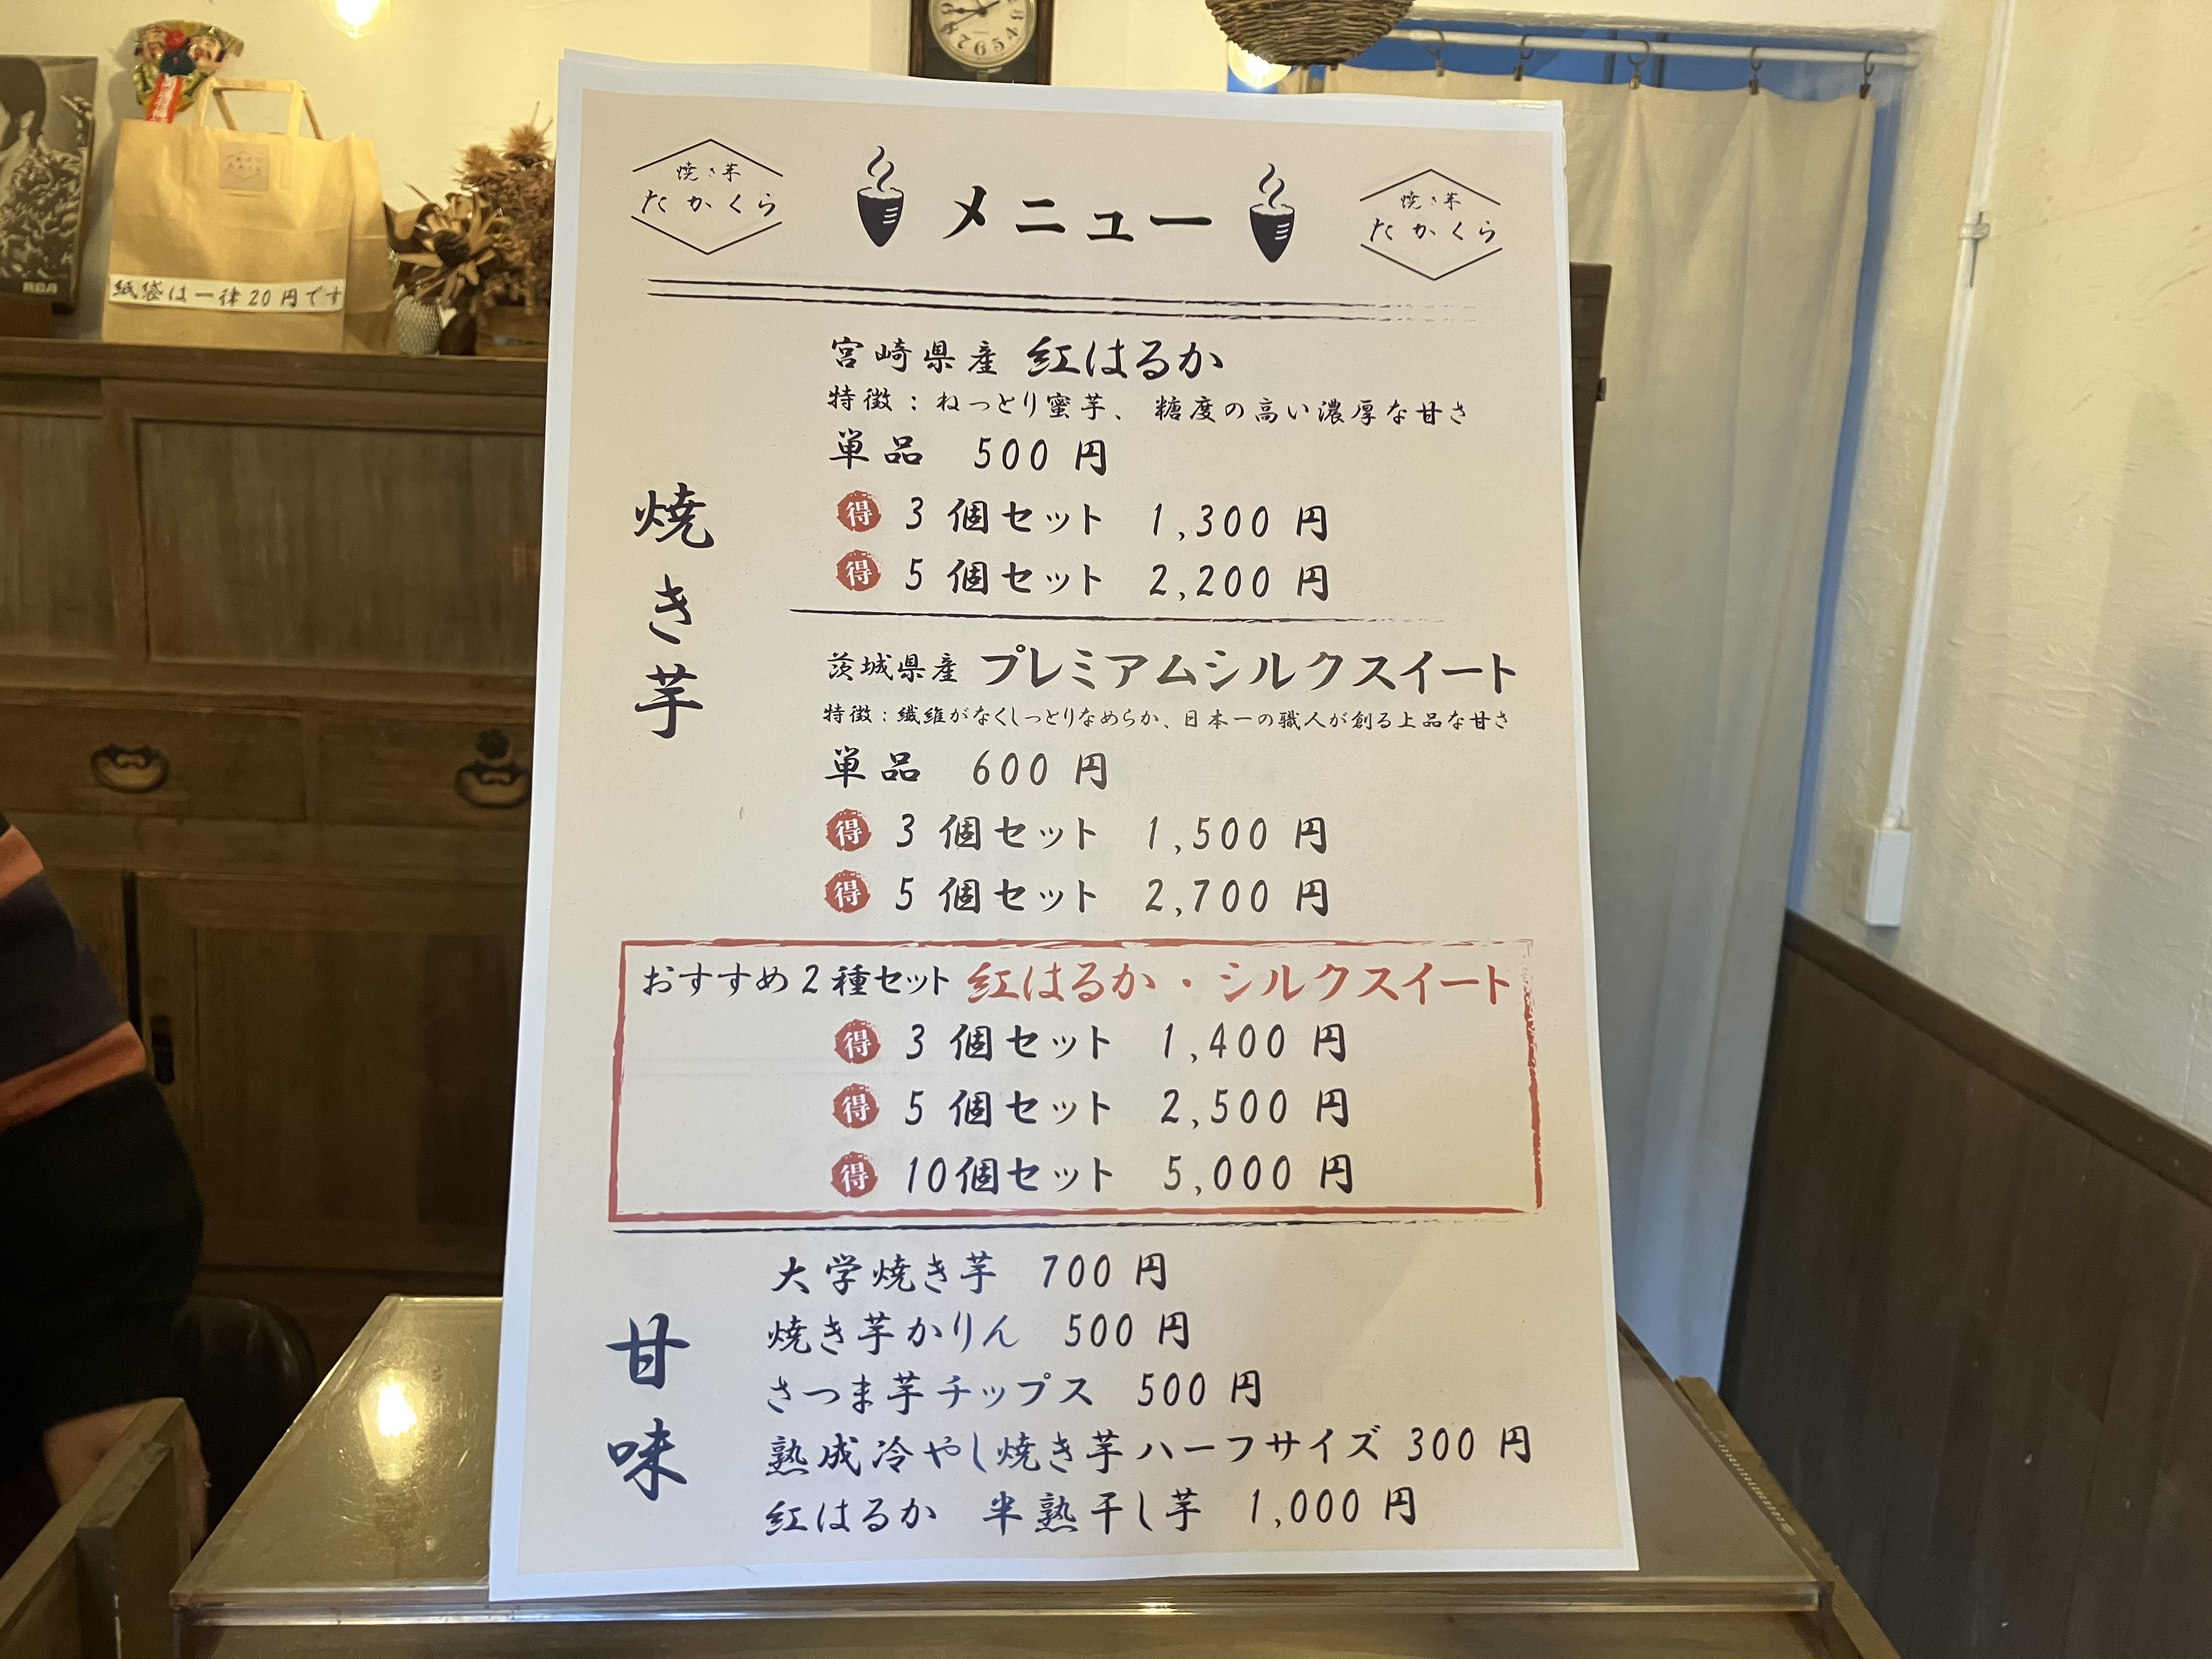 焼き芋
たかくら
メニュー
焼き芋
たかくら
紙袋は一律20円です
RCA
焼き芋
宮崎県産 紅はるか
特徴：ねっとり蜜芋、糖度の高い濃厚な甘さ
単品 500円
得 3個セット 1,300円
得 5個セット 2,200円
茨城県産 プレミアムシルクスイート
特徴：繊維がなくしっとりなめらか、日本一の職人が創る上品な甘さ
単品 600円
得 3個セット 1,500円
得 5個セット 2,700円
おすすめ2種セット 紅はるか・シルクスイート
得 3個セット 1,400円
得 5個セット 2,500円
得 10個セット 5,000円
甘味
大学焼き芋 700円
焼き芋かりん 500円
さつま芋チップス 500円
熟成冷やし焼き芋ハーフサイズ 300円
紅はるか 半熟干し芋 1,000円